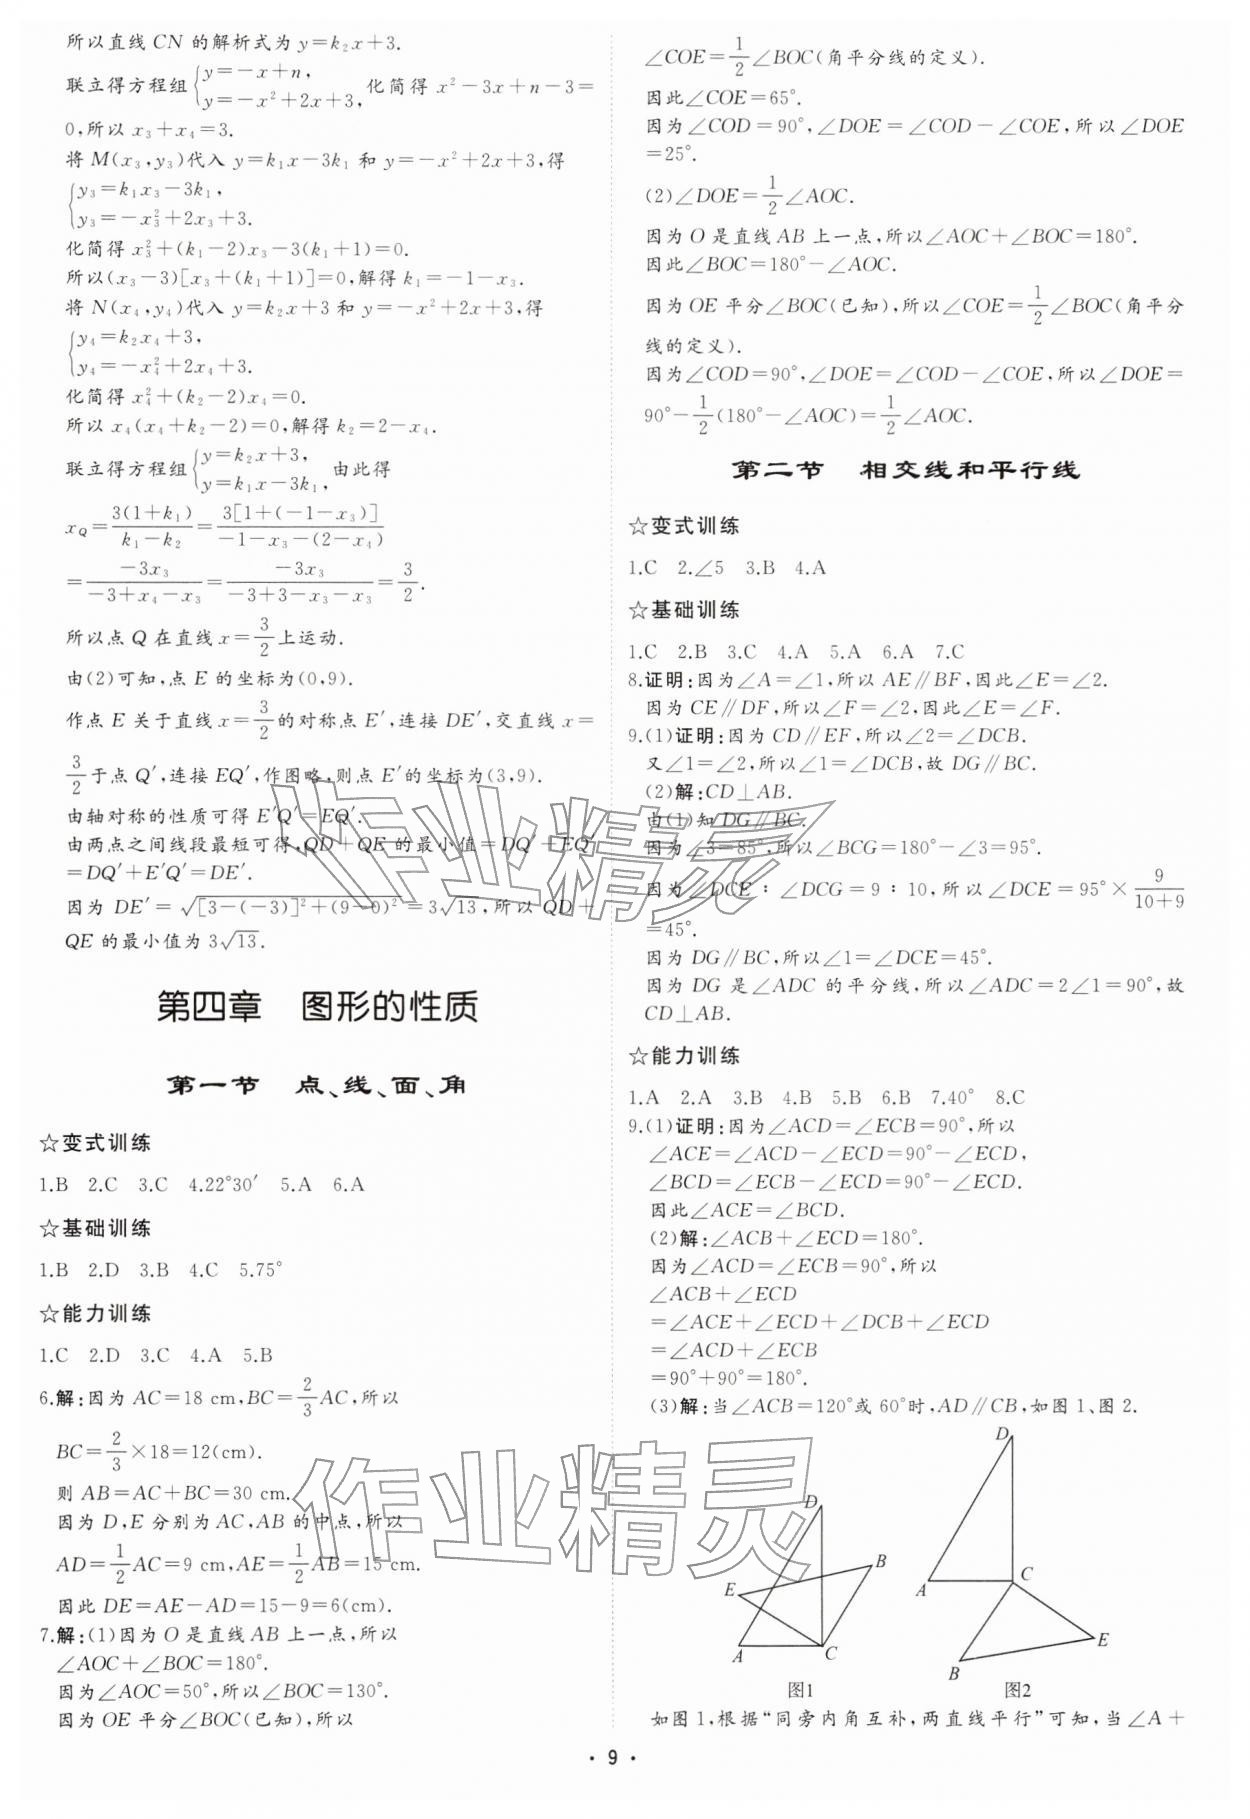 所以直线 CN 的解析式为 y=k₂x+3.
联立得方程组{y=-x+n, y=-x²+2x+3, 化简得 x²-3x+n-3=
0,所以 x₃+x₄=3.
将 M(x₃,y₃)代入 y=k₁x-3k₁ 和 y=-x²+2x+3,得
{y₃=k₁x₃-3k₁,
y₃=-x₃²+2x₃+3.
化简得 x₃²+(k₁-2)x₃-3(k₁+1)=0.
所以(x₃-3)[x₃+(k₁+1)]=0,解得 k₁=-1-x₃.
将 N(x₄,y₄)代入 y=k₂x+3 和 y=-x²+2x+3,得
{y₄=k₂x₄+3,
y₄=-x₄²+2x₄+3.
化简得 x₄²+(k₂-2)x₄=0.
所以 x₄(x₄+k₂-2)=0,解得 k₂=2-x₄.
联立得方程组{y=k₂x+3, y=k₁x-3k₁, 由此得
x_Q=3(1+k₁)/(k₁-k₂)=3[1+(-1-x₃)]/(-1-x₃-(2-x₄))
=-3x₃/(-3+x₄-x₃)=-3x₃/(-3+3-x₃-x₃)=3/2.
所以点 Q 在直线 x=3/2上运动.
由(2)可知,点 E 的坐标为(0,9).
作点 E 关于直线 x=3/2的对称点 E′,连接 DE′,交直线 x=
3/2于点 Q′,连接 EQ′,作图略,则点 E′的坐标为(3,9).
由轴对称的性质可得 E′Q′=EQ′.
由两点之间线段最短可得,QD+QE 的最小值=DQ′+EQ′
=DQ′+E′Q′=DE′.
因为 DE′=√([3-(-3)]²+(9-0)²)=3√13,所以 QD+
QE 的最小值为 3√13.
第四章 图形的性质
第一节 点、线、面、角
☆变式训练
1.B 2.C 3.C 4.22°30′ 5.A 6.A
☆基础训练
1.B 2.D 3.B 4.C 5.75°
☆能力训练
1.C 2.D 3.C 4.A 5.B
6.解:因为 AC=18 cm,BC=2/3 AC,所以
BC=2/3×18=12(cm).
则 AB=AC+BC=30 cm.
因为 D,E 分别为 AC,AB 的中点,所以
AD=1/2 AC=9 cm,AE=1/2 AB=15 cm.
因此 DE=AE-AD=15-9=6(cm).
7.解:(1)因为 O 是直线 AB 上一点,所以
∠AOC+∠BOC=180°.
因为∠AOC=50°,所以∠BOC=130°.
因为 OE 平分∠BOC(已知),所以
∠COE=1/2∠BOC(角平分线的定义).
因此∠COE=65°.
因为∠COD=90°,∠DOE=∠COD-∠COE,所以∠DOE
=25°.
(2)∠DOE=1/2∠AOC.
因为 O 是直线 AB 上一点,所以∠AOC+∠BOC=180°.
因此∠BOC=180°-∠AOC.
因为 OE 平分∠BOC(已知),所以∠COE=1/2∠BOC(角平分
线的定义).
因为∠COD=90°,∠DOE=∠COD-∠COE,所以∠DOE=
90°-1/2(180°-∠AOC)=1/2∠AOC.
第二节 相交线和平行线
☆变式训练
1.C 2.∠5 3.B 4.A
☆基础训练
1.C 2.B 3.C 4.A 5.A 6.A 7.C
8.证明:因为∠A=∠1,所以 AE∥BF,因此∠E=∠2.
因为 CE∥DF,所以∠F=∠2,因此∠E=∠F.
9.(1)证明:因为 CD∥EF,所以∠2=∠DCB.
又∠1=∠2,所以∠1=∠DCB,故 DG∥BC.
(2)解:CD⊥AB.
由(1)知 DG∥BC.
因为∠3=85°,所以∠BCG=180°-∠3=95°.
因为∠DCE∶∠DCG=9∶10,所以∠DCE=95°×9/(10+9)
=45°.
因为 DG∥BC,所以∠1=∠DCE=45°.
因为 DG 是∠ADC 的平分线,所以∠ADC=2∠1=90°,故
CD⊥AB.
☆能力训练
1.A 2.A 3.B 4.B 5.B 6.B 7.40° 8.C
9.(1)证明:因为∠ACD=∠ECB=90°,所以
∠ACE=∠ACD-∠ECD=90°-∠ECD,
∠BCD=∠ECB-∠ECD=90°-∠ECD.
因此∠ACE=∠BCD.
(2)解:∠ACB+∠ECD=180°.
因为∠ACD=∠ECB=90°,所以
∠ACB+∠ECD
=∠ACE+∠ECD+∠DCB+∠ECD
=∠ACD+∠ECB
=90°+90°=180°.
(3)解:当∠ACB=120°或 60°时,AD∥CB,如图 1、图 2.
D
B
E
A
C
图1
D
A
C
E
B
图2
如图 1,根据“同旁内角互补,两直线平行”可知,当∠A+
· 9 ·
作业精灵
作业精灵